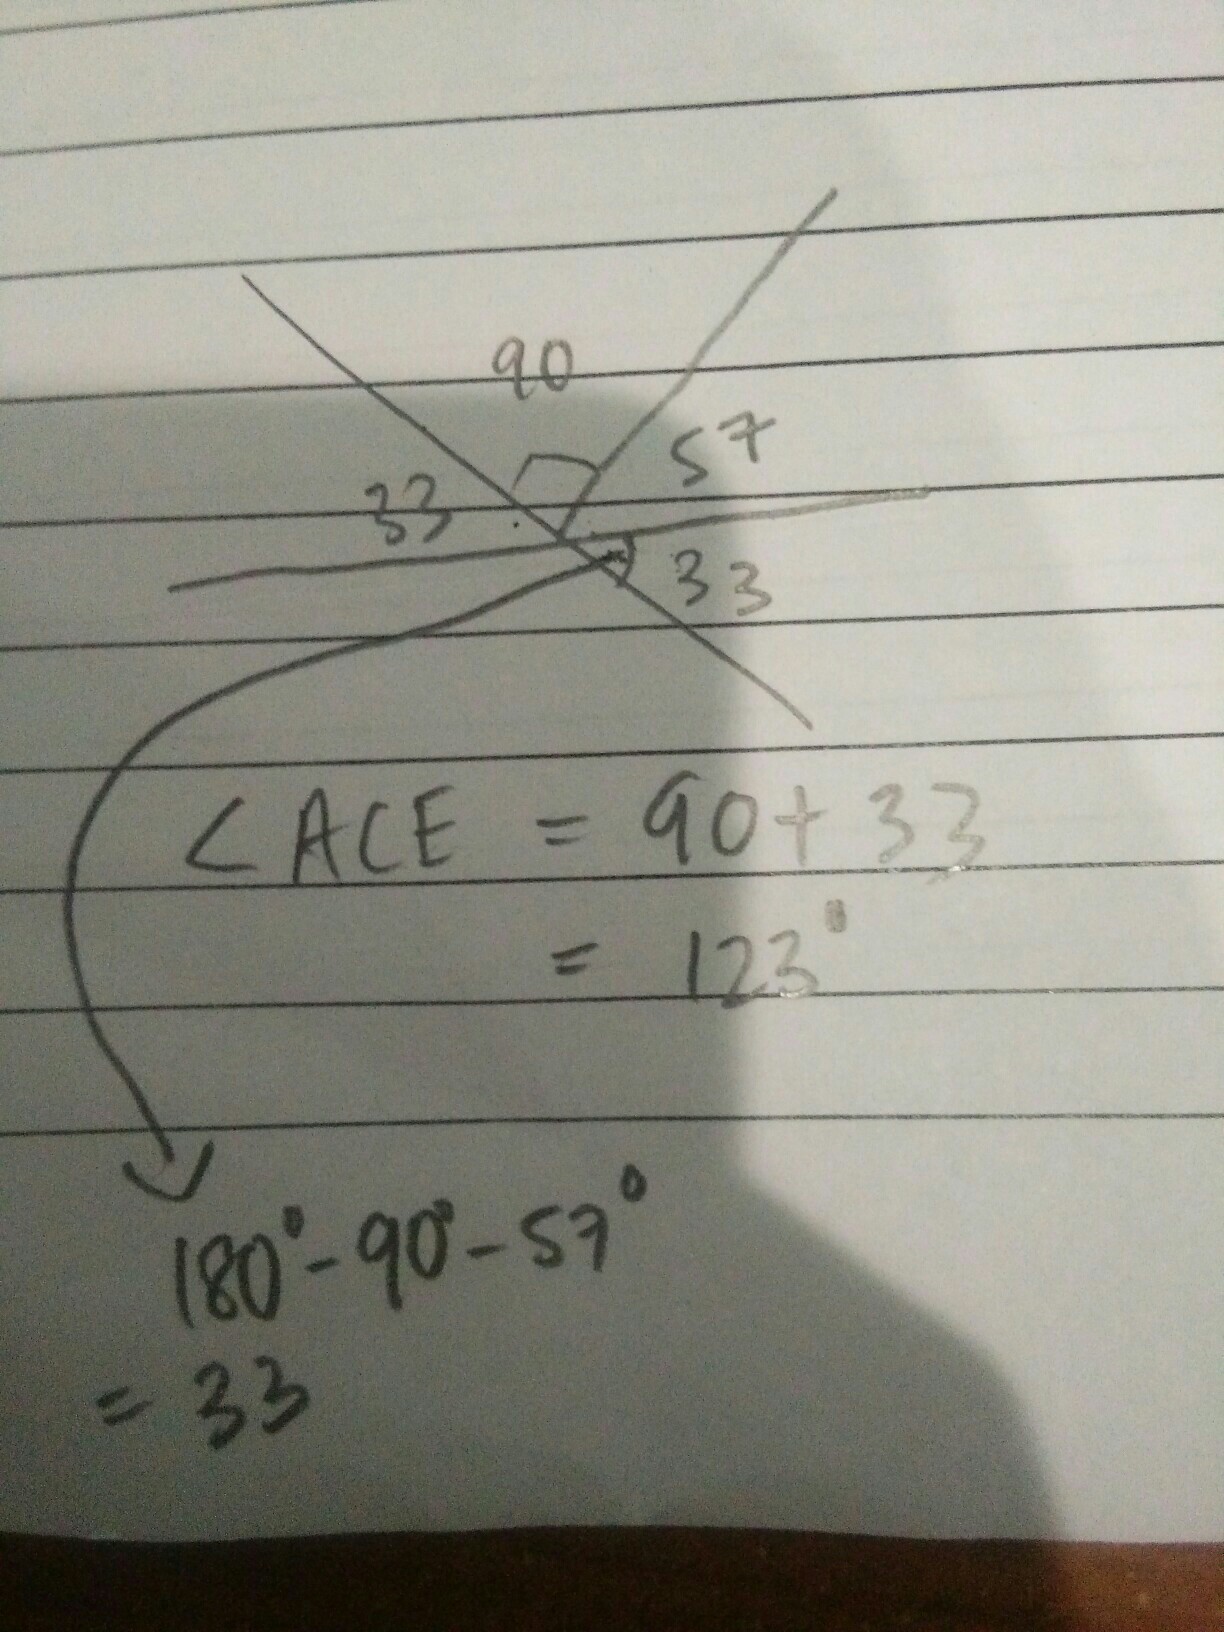 90
57
33
33
< ACE = 90 + 33
= 123°
180° - 90° - 57°
= 33